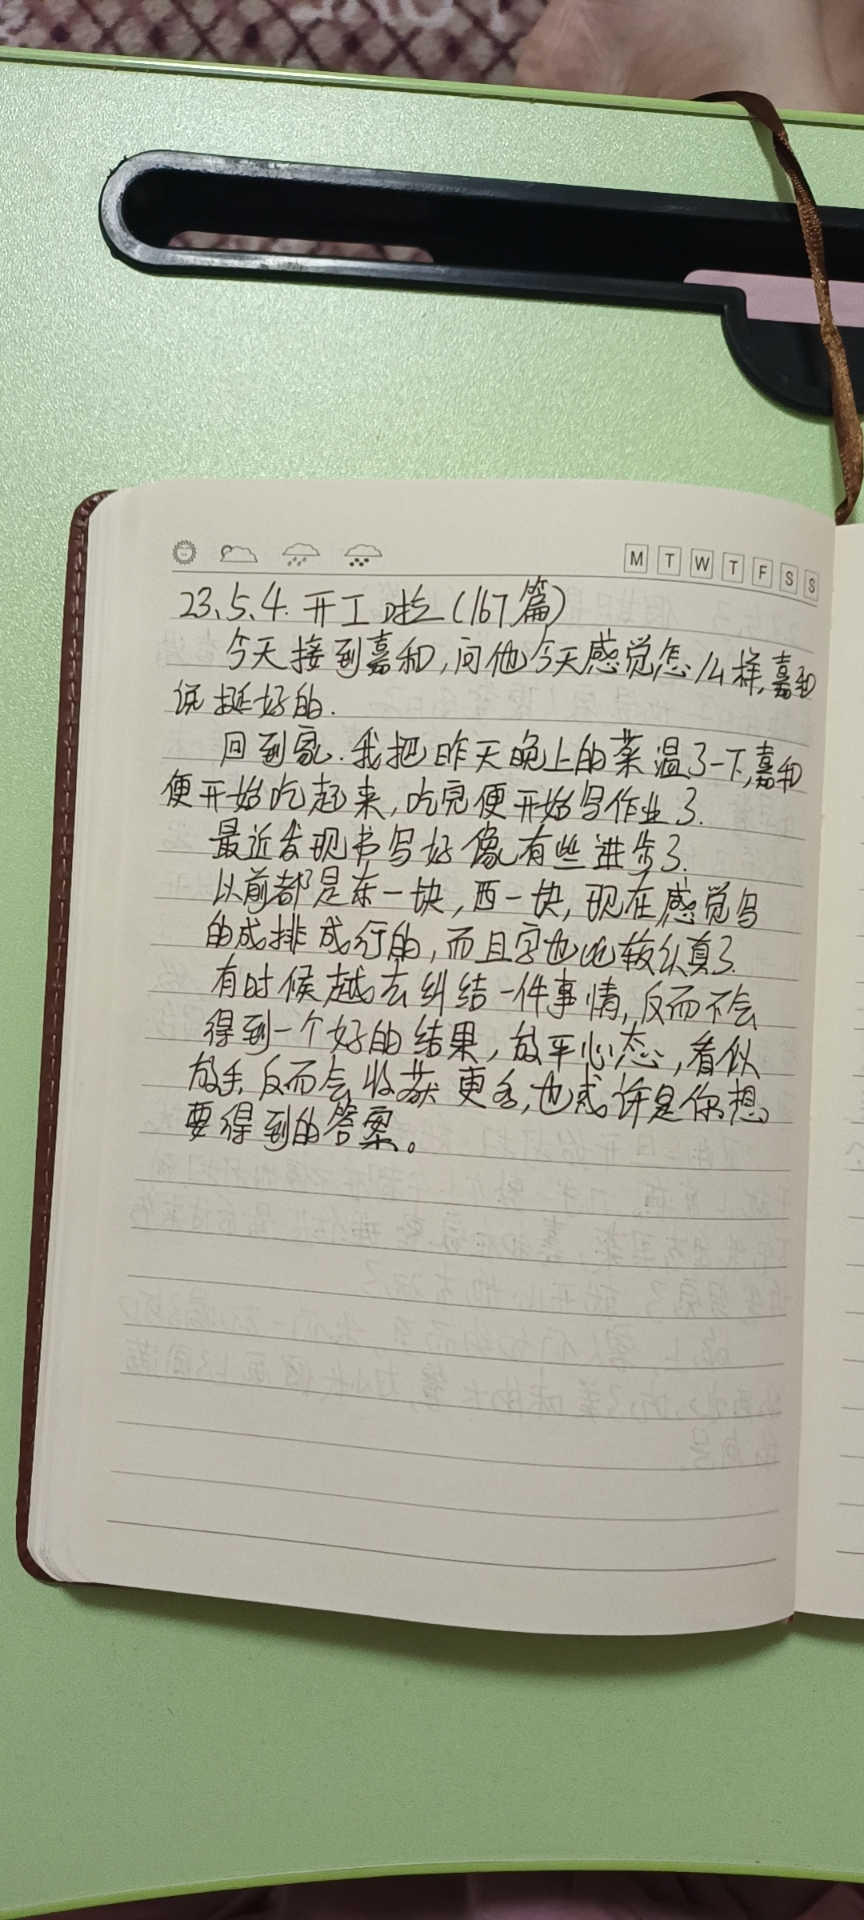 M T W T F S S
23.5.4. 开工啦(167篇)
今天接到嘉和,问他今天感觉怎么样,嘉和
说挺好的.
回到家.我把昨天晚上的菜温了一下,嘉和
便开始吃起来,吃完便开始写作业了.
最近发现书写好像有些进步了.
以前都是东一块,西一块,现在感觉写
的成排成行的,而且字也比较认真了.
有时候越去纠结一件事情,反而不会
得到一个好的结果,放平心态,看似
放手,反而会收获更多,也或许是你想
要得到的答案。